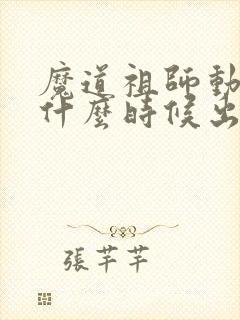 魔道祖師動
什麼時候出
張芊芊